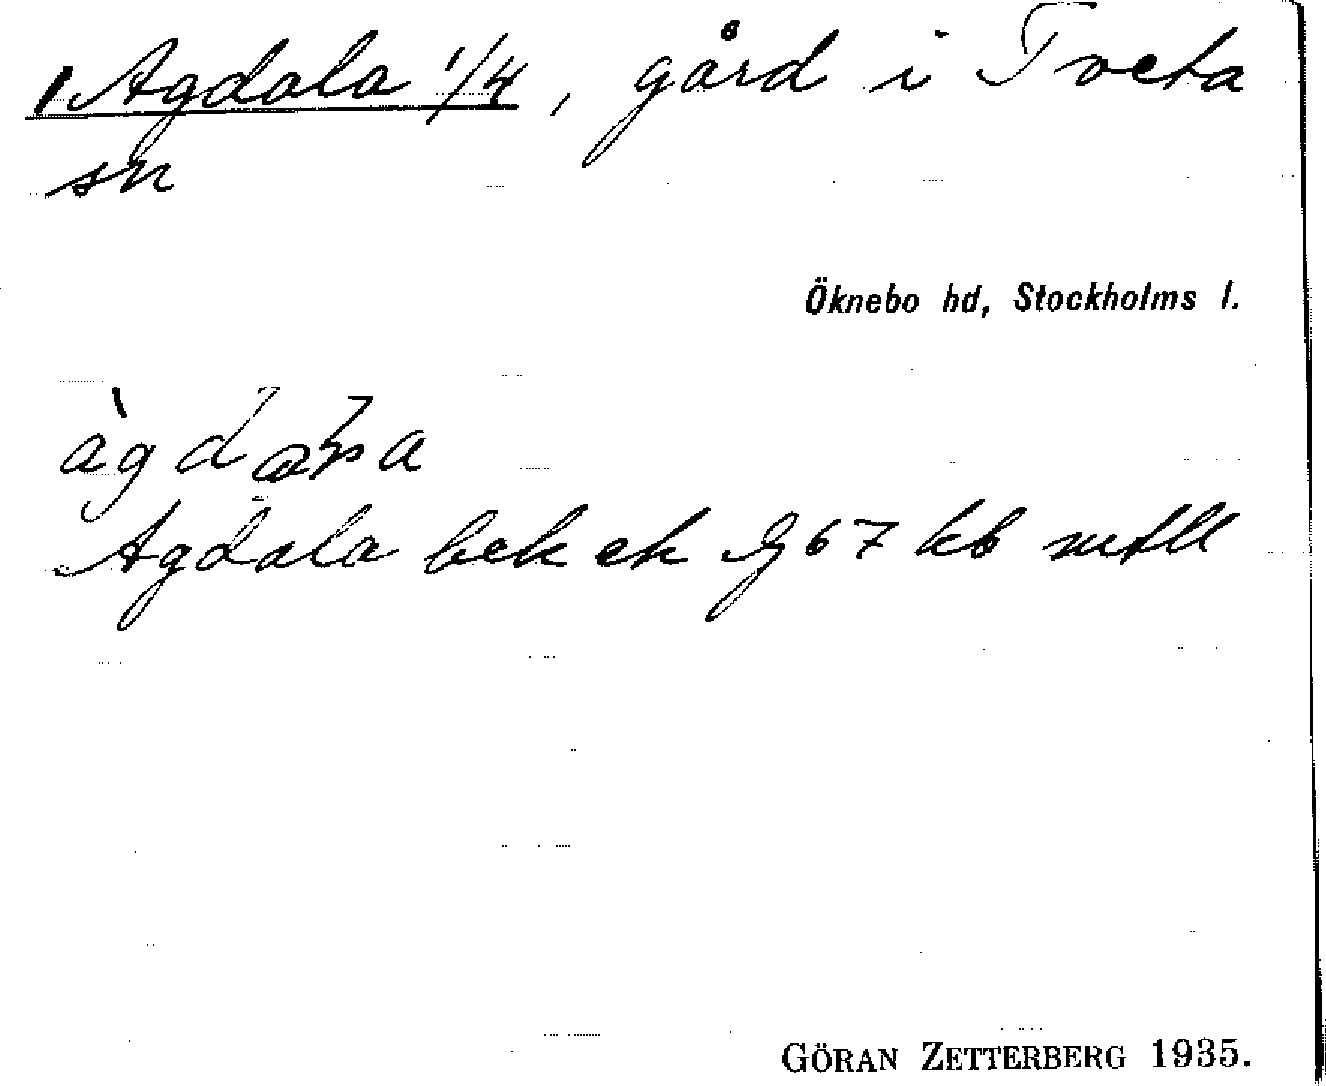 Agdala 1/4, gård i Tveta
sn
Öknebo hd, Stockholms l.
Agdala bek ek G 67 kb mtll
GÖRAN ZETTERBERG 1935.